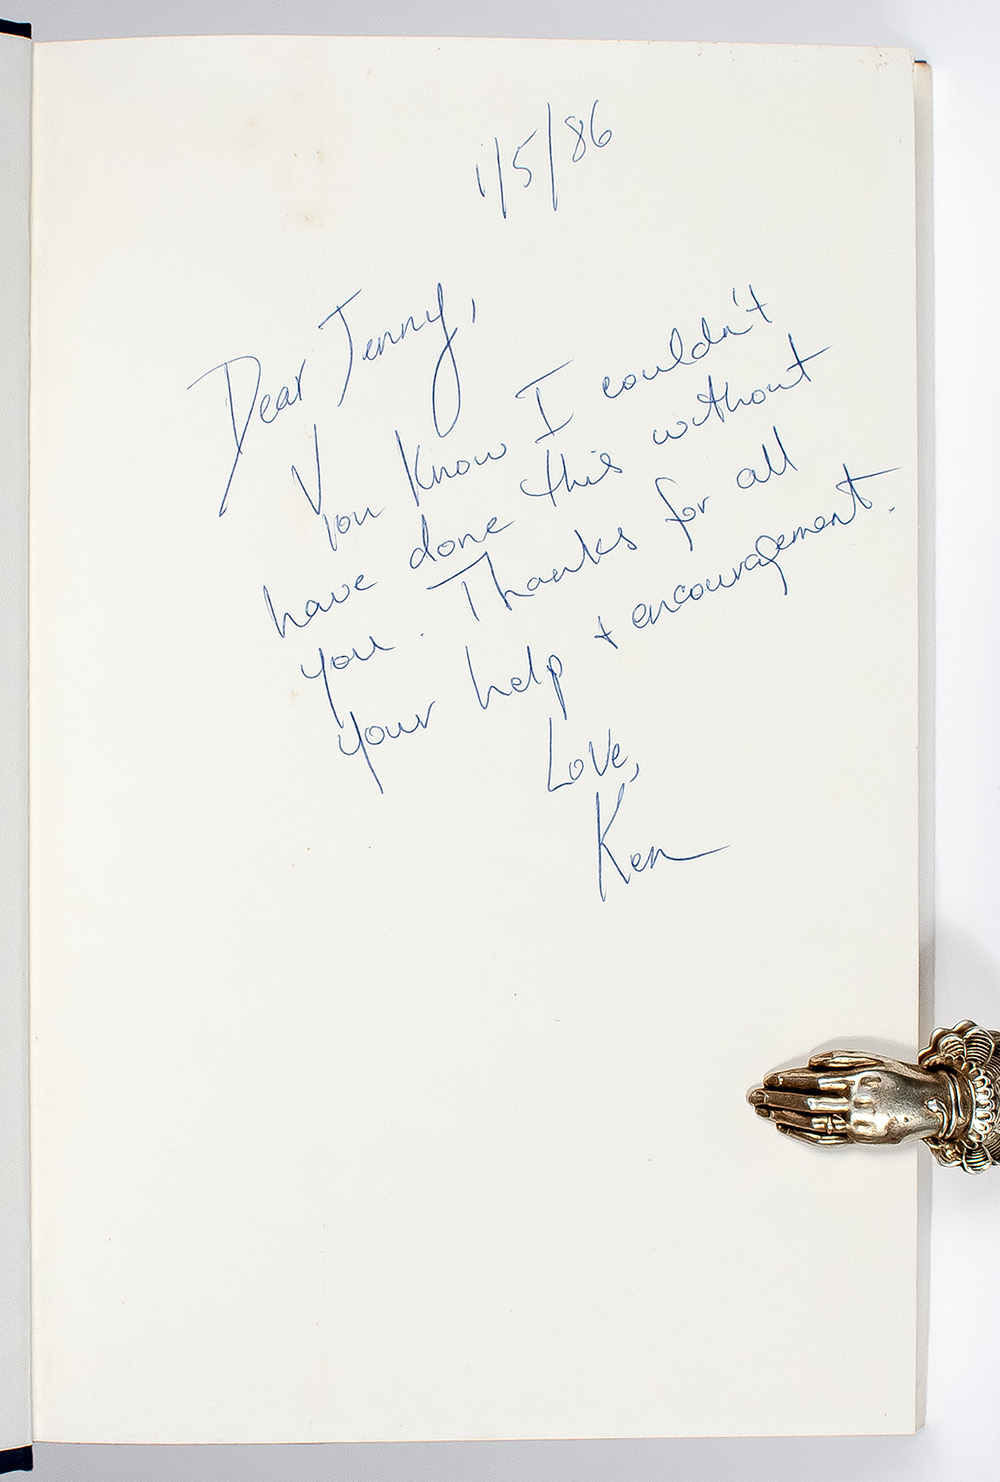 1/5/86
Dear Jenny,
You know I couldn't
have done this without
you. Thanks for all
your help + encouragement.
Love,
Ken